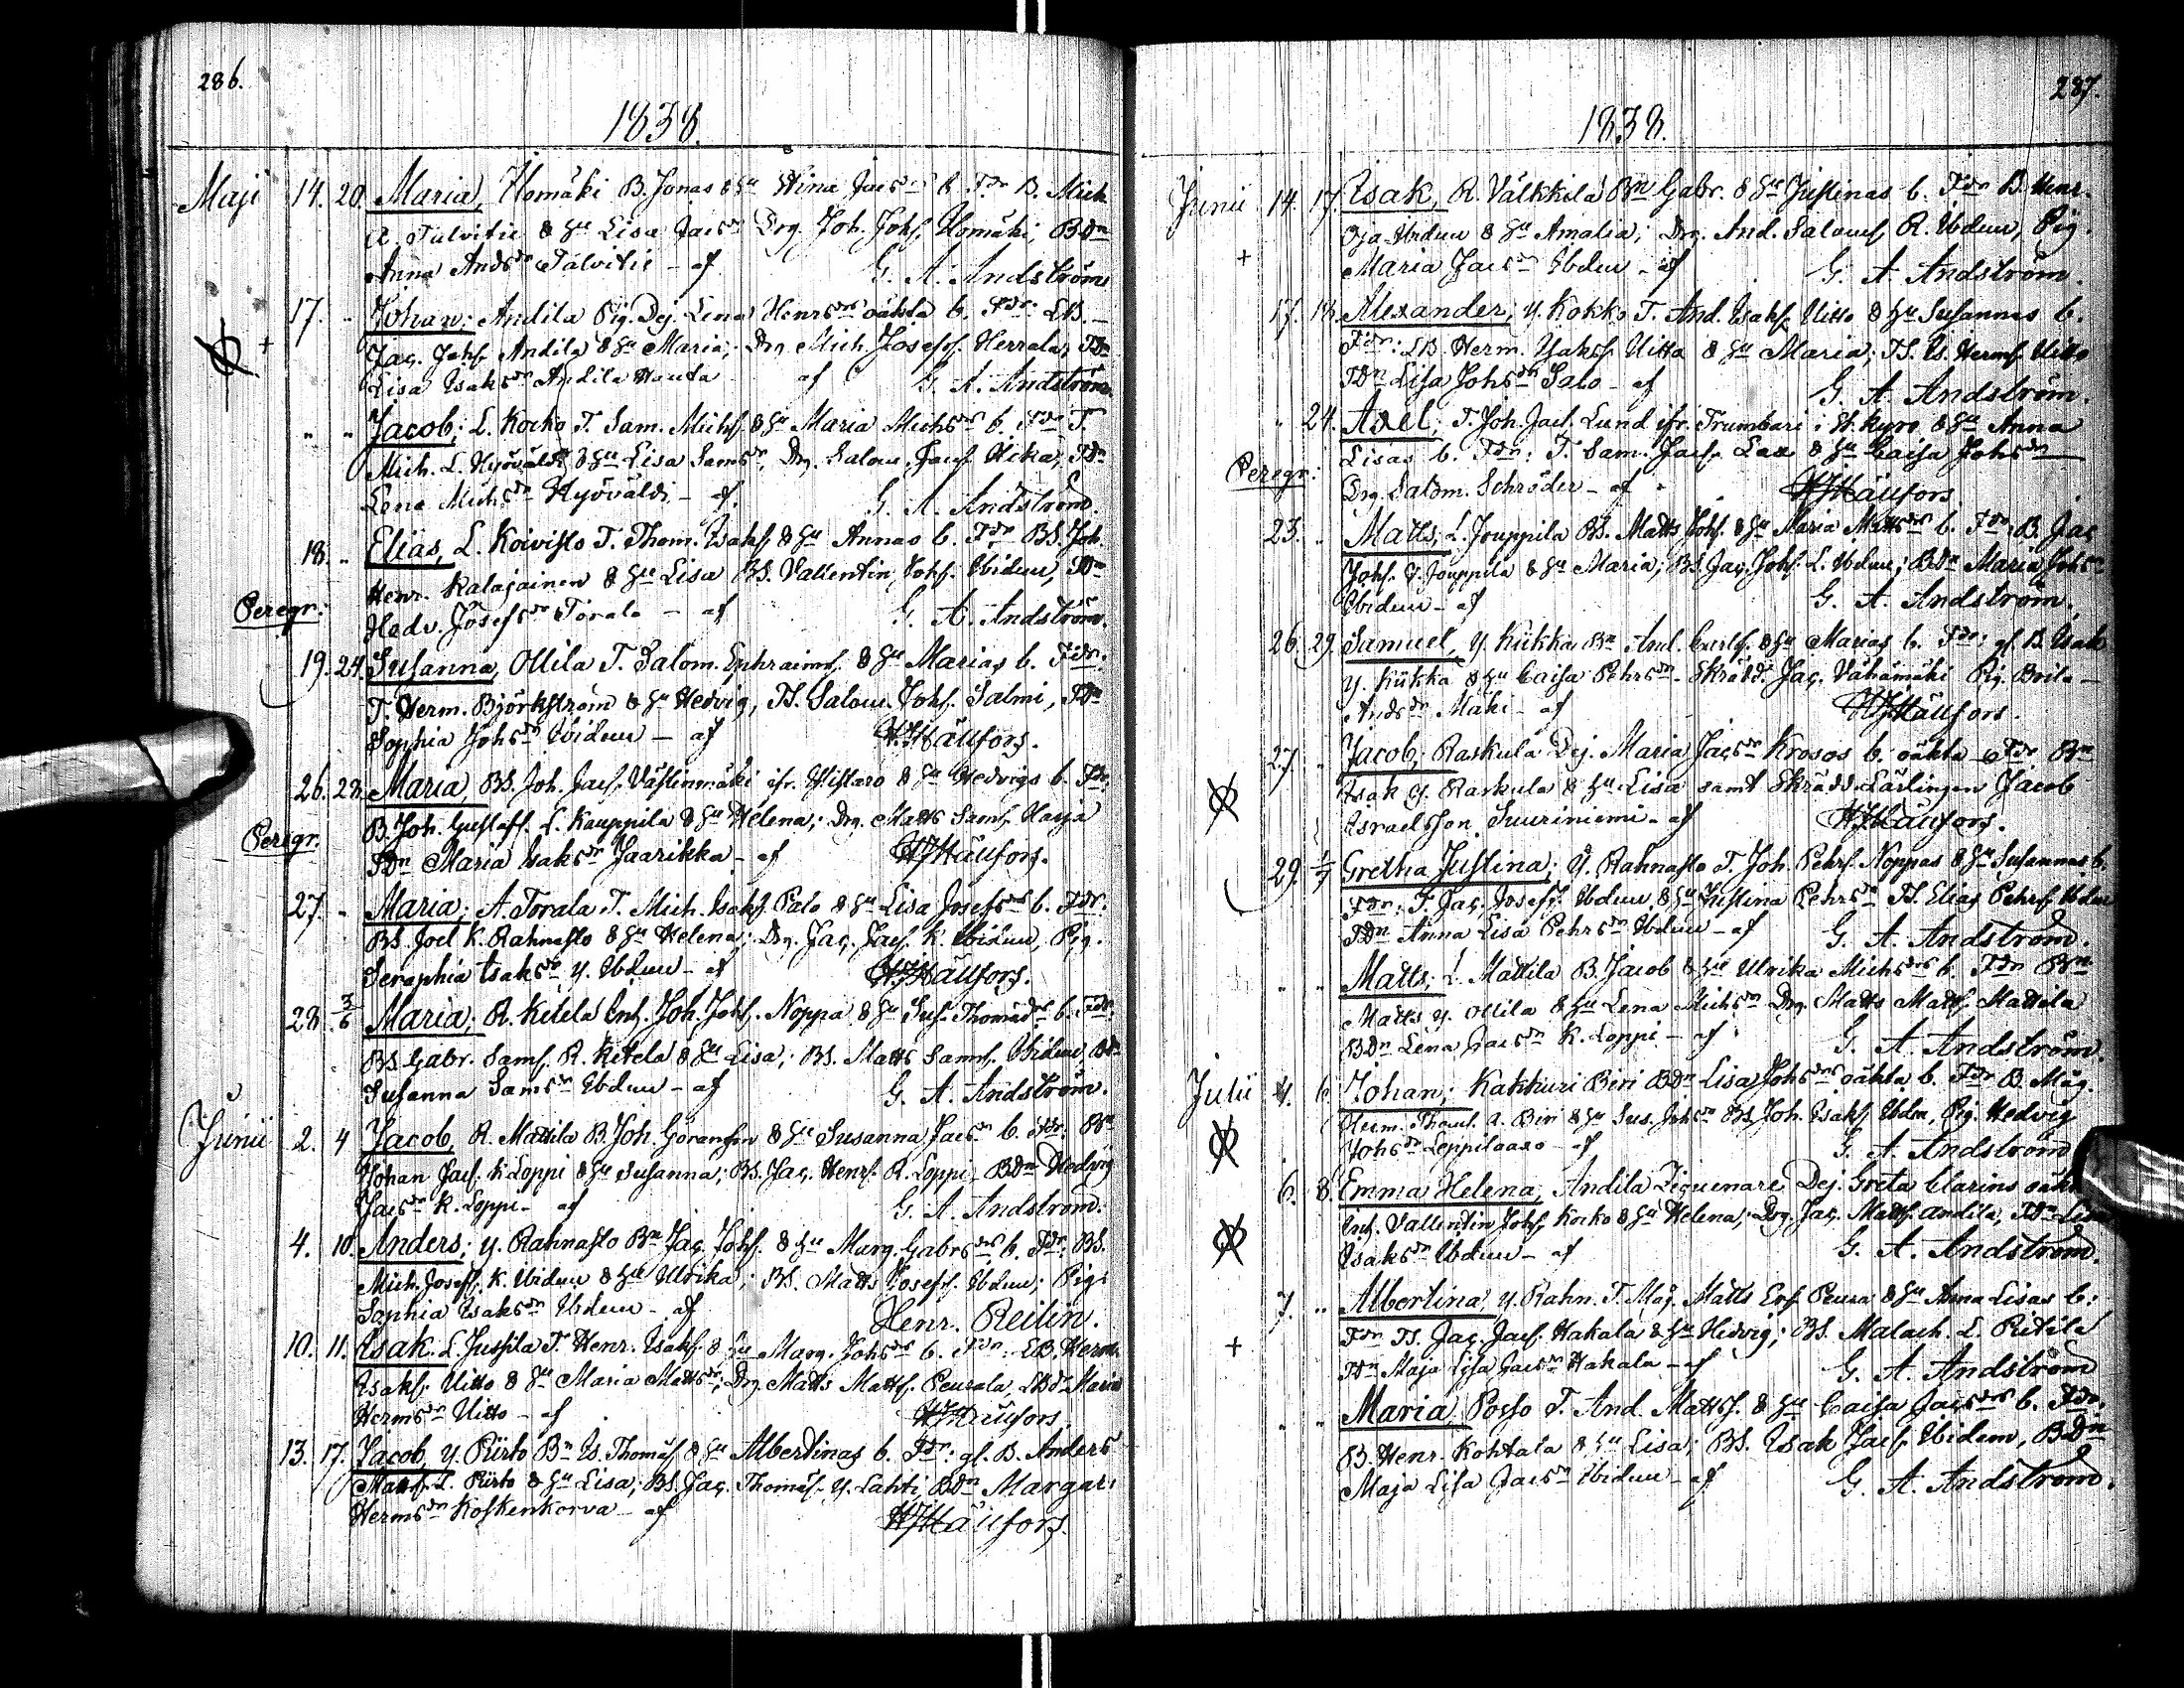 286.
1838.
Maji 14. 20. Maria, Ilomäki B. Jonas & Hu Stina Jacsdrs b. Fdr. B. Mich.
A. Talvitie & Hu Lisa Jacsdr Drg. Joh. Johs. Ilomäki, BDn
Anna Andsdr Talvitie - af G. A. Andström
17. " Johan; Andila Pig. Dej. Lena Henrsdrs oäkta b. Fdr: LB.
+ Jac. Johs. Andila & Hu Maria; Drg. Mich. Josefs. Herrala, TDn
Lisa Isaksdr Andila Hauta af G. A. Andström.
" " Jacob; L. Kocko T. Sam. Michs. & Hu Maria Michsdrs b. Fdr T.
Mich. L. Hyövälti & Hu Lisa Samsdr, Drg. Salom. Jacs. Hika, TDn
Lena Michsdr Hyöväldi - af. G. A. Andström.
18. " Elias, L. Koivisto T. Thom. Isaks. & Hu Annas b. Fdr BS. Joh.
Henr. Kalajainen & Hu Lisa BS. Vallentin Johs. Ibidem, TDn
Peregr: Hedv. Josefsdr Torala - af G. A. Andström.
19. 24. Susanna, Ollila T. Salom. Ephraims. & Hu Marias b. Fdr:
T. Herm. Björkström & Hu Hedvig, TS. Salom. Johs. Salmi, TDn
Sophia Johsdr Ibidem - af HHällfors.
26. 28. Maria, BS. Joh. Jacs. Västinmäki ifr. Ylistaro & Hu Hedvigs b. Fdr.
B. Joh. Gustafs. L. Kauppila & Hu Helena; Drg. Matts Sams. Harja
Peregr. TDn Maria Isaksdr Jaarikka - af HHällfors.
27. " Maria; A. Torala T. Mich. Isaks. Palo & Hu Lisa Josefsdrs b. Fdr:
BS. Joel K. Rahnasto & Hu Helena; Drg. Jac. Jacs. K. Ibidem, Pig.
Seraphia Isaksdr Y. Ibdem - af HHällfors.
28. 3/6 Maria; R. Ketela Enh. Joh. Johs. Noppa & Hu Sus. Thomædr b. Fdr:
BS. Gabr. Sams. R. Ketela & Hu Lisa; BS. Matts Sams. Ibidem, BDn
Susanna Samsdr Ibdem - af G. A. Andström.
Junii 2. 4 Jacob, R. Mattila B. Joh. Göransson & Hu Susanna Jacsdr b. Fdr: Bn
Johan Jacs. K. Loppi & Hu Susanna; BS. Jac. Henrs. R. Loppi, BDn Hedvig
Jacsdr K. Loppi - af G. A. Andström.
4. 10. Anders; Y. Rahnasto Bn Jac. Johs. & Hu Marg. Gabrsdrs b. Fdr: BS.
Mich. Josefs. K. Ibidem & Hu Ulrika; BS. Matts Josefs. Ibdem; Pig:
Sophia Isaksdr Ibdem - af Henr. Reilin.
10. 11. Isak. L. Jussila T. Henr. Isaks. & Hu Marg. Johsdrs b. Fdr: LB. Herm.
Isaks. Uitto & Hu Maria Mattsdr; Drg. Matts Matts. Peurala, LBDn Maria
Hermsdr Uitto - af HHällfors.
13. 17. Jacob, Y. Piirto Bn Is. Thomæs. & Hu Albertinas b. Fdr: gl. B. Anders
Matts. L. Piirto & Hu Lisa; BS. Jac. Thomæs. Y. Lahti, BDn Margar:
Hermsdr Koskenkorva - af HHällfors.
287.
1838.
Junii 14. 17. Isak, R. Välkkilä Bn Gabr. & Hu Justinas b. Fdr B. Henr.
Oja Ibidem & Hu Amalia; Drg. And. Saloms. R. Ibdem, Pig.
+ Maria Jacsdr Ibdem - af G. A. Andström.
17. 18. Alexander; Y. Kokko T. And. Isaks. Uitto & Hu Susannas b.
Fdr: LB. Herm. Isaks. Uitto & Hu Maria; TS. Is. Herms. Uitto
TDn Lisa Johsdr Salo - af G. A. Andström.
" 24. Axel; T. Joh. Jacs. Lund ifr. Trumbari i St. Kyro & Hu Anna
Lisas b. Fdr: T. Sam. Jacs. Lax & Hu Caisa Johsdr
Peregr: Drg. Salom. Schröder - af HHällfors.
23. " Matts, L. Jouppila BS. Matts Johs. & Hu Maria Mattsdrs b. Fdr: B. Jac
Johs. Y. Jouppila & Hu Maria; BS. Jac. Johs. L. Ibdem; BDn Maria Johsdr
Ibidem - af G. A. Andström.
26. 29. Samuel, Y. Kükka Bn And. Carls. & Hu Marias b. Fdr: gl. B. Isak
Y. Kükka & Hu Caisa Pehrsdr. Skrädd. Jac. Vähämäki Pig. Brita
Andsdr Mäki - af HHällfors.
27. " Jacob; Raskula Dej. Maria Jacsdr Krosos b. oäkta Fdr Bn
Isak Y. Raskula & Hu Lisa samt Skrädd. Lärlingen Jacob
Israelsson Suuriniemi - af HHällfors.
29. 1/7 Gretha Justina; Y. Rahnasto T. Joh. Pehrs. Noppas & Hu Susannas b.
Fdr: T. Jac. Josefs. Ibdem & Hu Justina Pehrsdr TS. Elias Pehrs. Ibdem
TDn Anna Lisa Pehrsdr Ibdem - af G. A. Andström.
" " Matts; L. Mattila B. Jacob & Hu Ulrika Michsdrs b. Fdr Bn
Matts Y. Ollila & Hu Lena Michsdr Drg. Matts Matts. Mattila
BDn Lena Jacsdr K. Loppi - af G. A. Andström.
Julii 4. 6. Johan; Kakkuri Biri BDn Lisa Johsdrs oäkta b. Fdr B. Mäg.
Herm. Thoms. A. Biri & Hu Sus. Johsdr BS. Joh. Isaks. Ibdm, Pig. Hedvig
Johsdr Leppilaaxo - af G. A. Andström
6. 8. Emma Helena, Andila Ziguenare Dej. Greta Clarins oäkta
Enh. Vallentin Johs. Kocko & Hu Helena; Drg. Jac. Matts. Andila, TDn Lisa
Isaksdr Ibdem - af G. A. Andström.
7. " Albertina, Y. Rahn. T. Mäg. Matts Ers. Peura & Hu Anna Lisas b:
Fdr TS. Jac. Jacs. Hakala & Hu Hedvig; BS. Malach. L. Ritila
+ TDn Maja Lisa Jacsdr Hakala - af G. A. Andström
" " Maria, Posso T. And. Mattss. & Hu Caisa Jacsdrs b. Fdr.
B. Henr. Kohtala & Hu Lisa; BS. Isak Jacs. Ibidem, BDn
Maja Lisa Jacsdr Ibidem - af G. A. Andström.